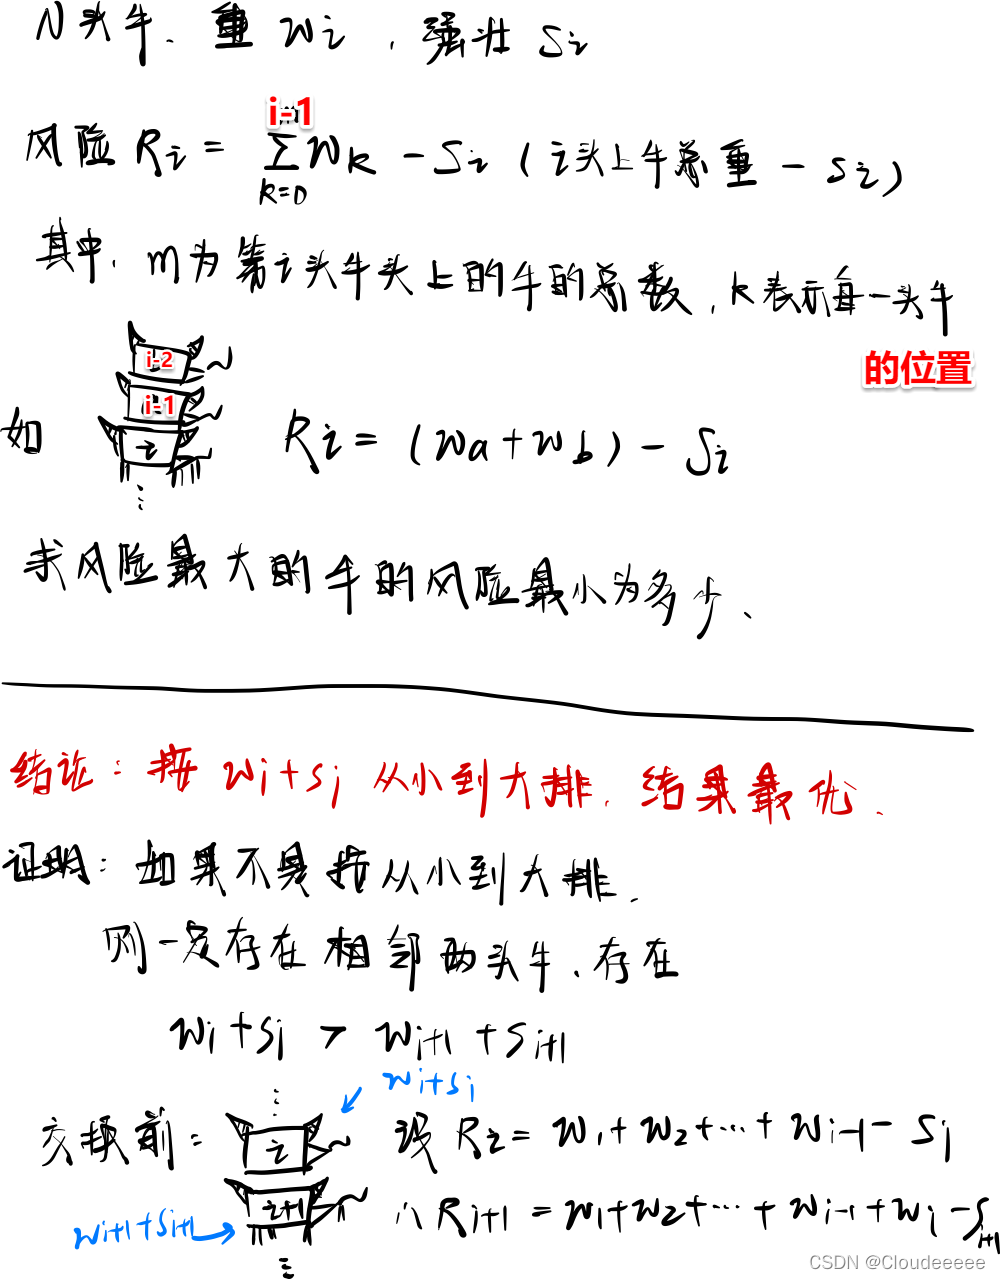 N头牛、重 Wi , 强壮 Si
i-1
风险 Ri = ΣWk - Si ( i头上牛总重 - Si )
k=0
其中, m为第i头牛头上的牛的总数, k表示每一头牛
的位置
i-2
i-1
i
如 Ri = (Wa + Wb) - Si
求风险最大的牛的风险最小为多少、
结论: 按 Wi+Si 从小到大排, 结果最优.
证明: 如果不是按从小到大排.
则一定存在相邻两头牛、存在
Wi + Si > Wi+1 + Si+1
Wi+Si
交换前: i 设 Ri = W1 + W2 + ... + Wi-1 - Si
i+1 Ri+1 = W1+W2+ ... + Wi-1 + Wi - Si+1
Wi+1+Si+1
CSDN @Cloudeeeee